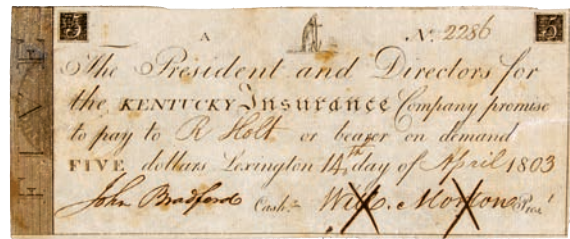 5 A No. 2286 5
FIVE
The President and Directors for
the KENTUCKY Insurance Company promise
to pay to R Holt or bearer on demand
FIVE dollars Lexington 14th day of April 1803
John Bradford Cash.r Will. Morton Pres.t